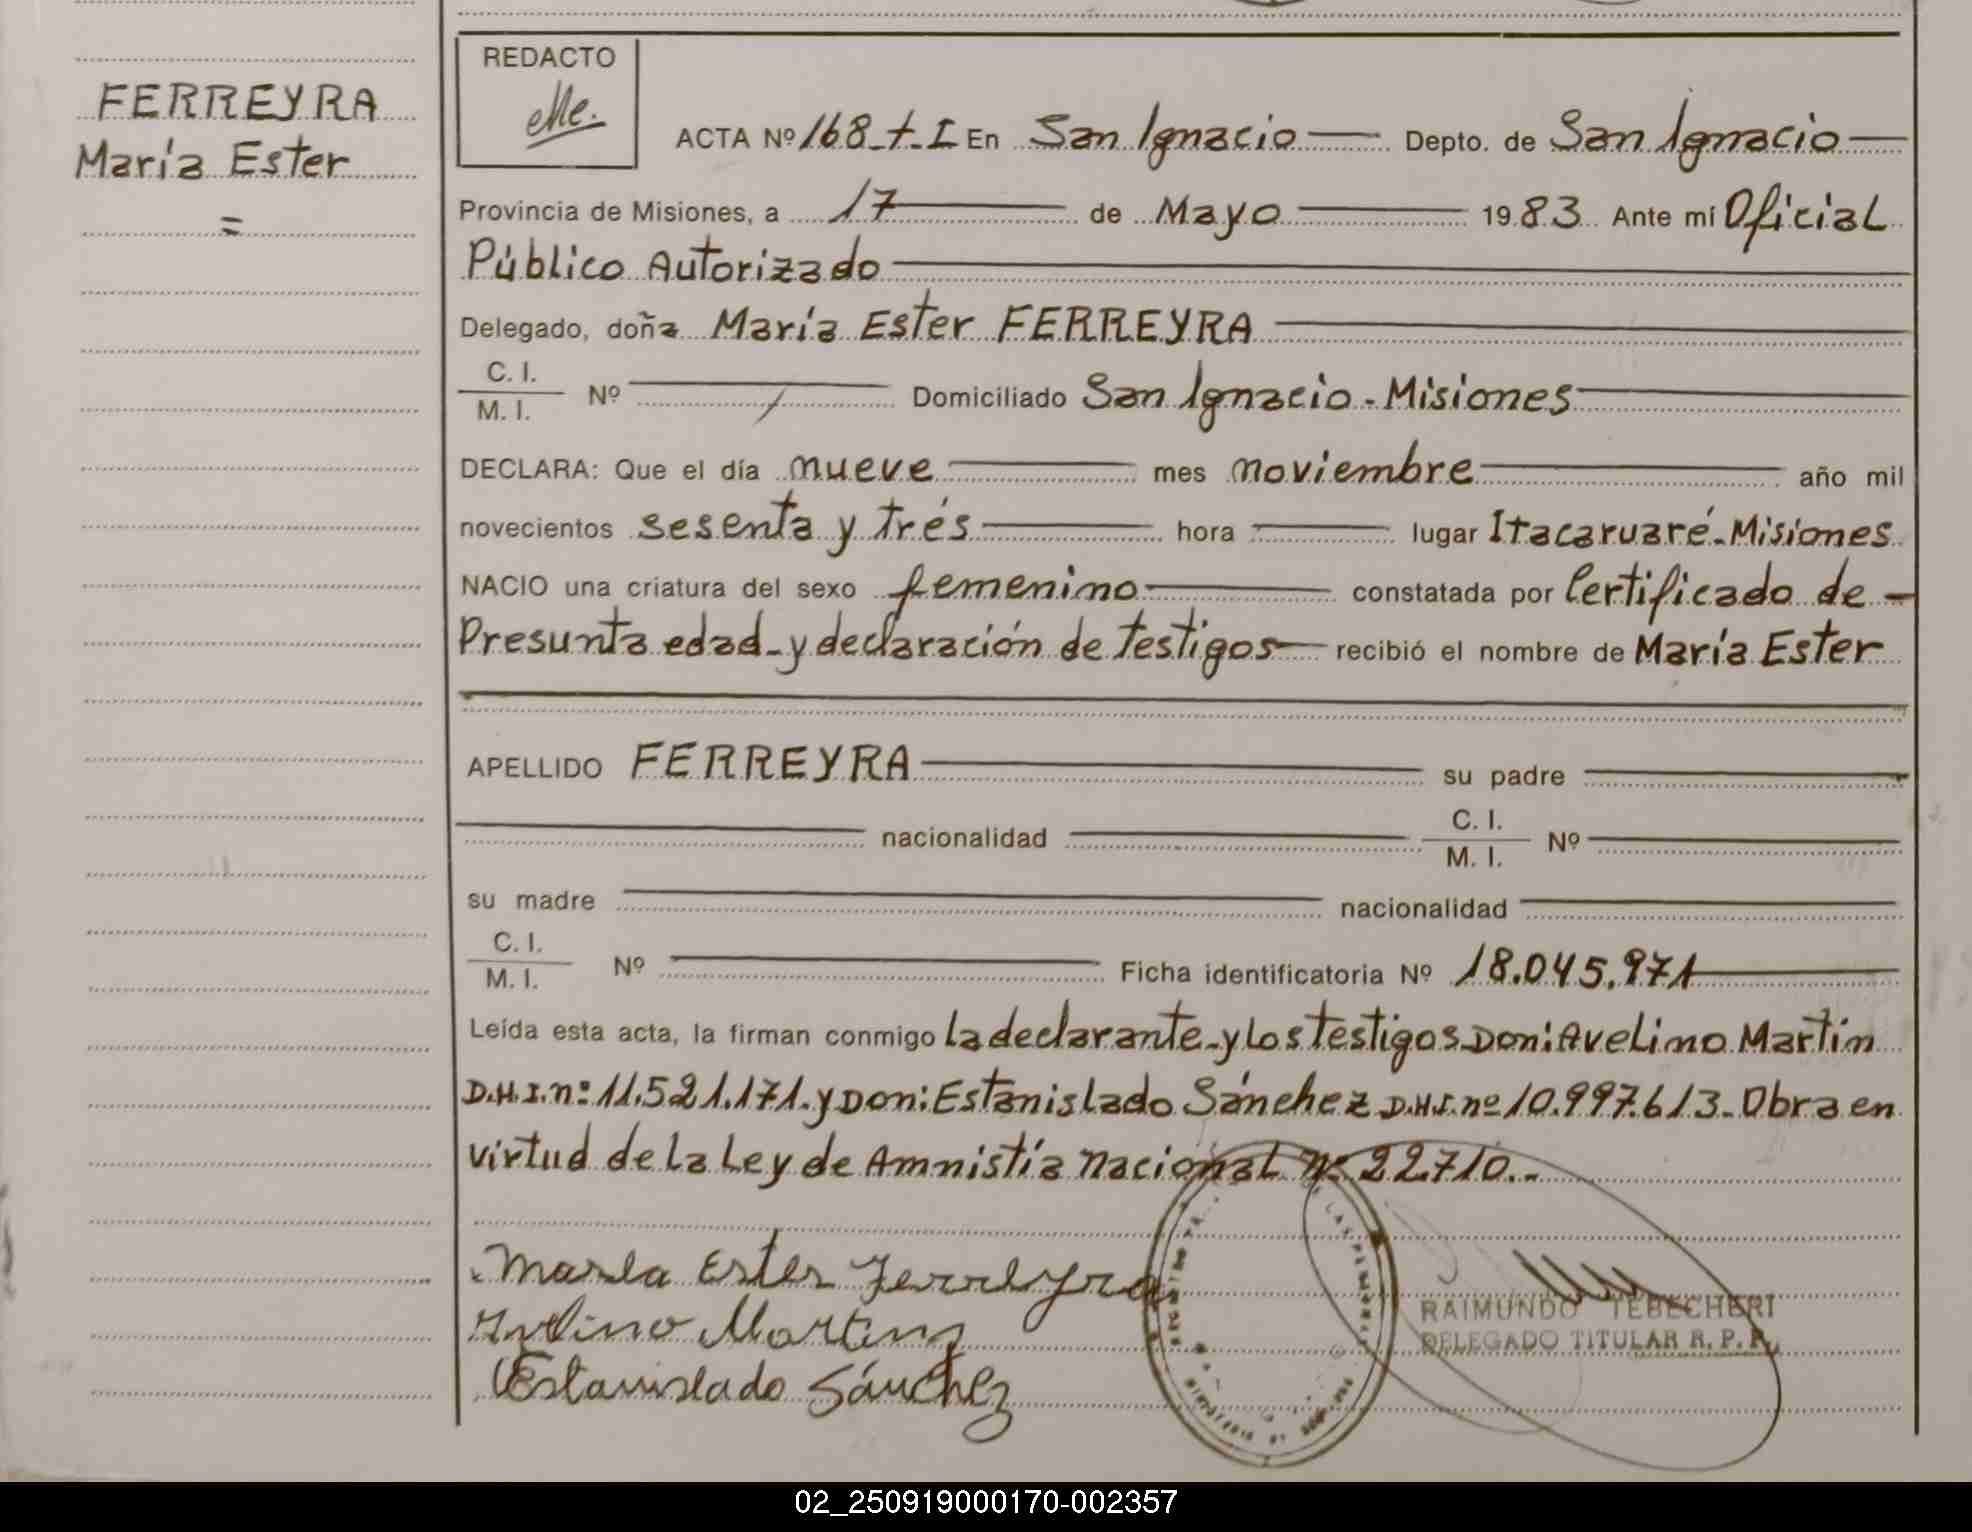 FERREYRA
María Ester
=
REDACTO
ACTA Nº 168-t-I En San Ignacio Depto. de San Ignacio
Provincia de Misiones, a 17 de Mayo 1983 Ante mí Oficial
Público Autorizado
Delegado, doña María Ester FERREYRA
C. I.
M. I. Nº Domiciliado San Ignacio - Misiones
DECLARA: Que el día nueve mes noviembre año mil
novecientos sesenta y trés hora lugar Itacaruaré-Misiones
NACIO una criatura del sexo femenino constatada por Certificado de
Presunta edad-y declaración de testigos recibió el nombre de María Ester
APELLIDO FERREYRA su padre
nacionalidad C. I.
M. I. Nº
su madre nacionalidad
C. I.
M. I. Nº Ficha identificatoria Nº 18.045.971
Leída esta acta, la firman conmigo la declarante-y los testigos Don: Avelino Martin
D.N.I.nº 11.521.171. y Don: Estanislado Sánchez D.N.I.nº 10.997.613- Obra en
virtud de la Ley de Amnistía nacional nº 22710.-
María Ester Ferreyra
Avelino Martins
Estanislado Sánchez
RAIMUNDO TEBECHERI
DELEGADO TITULAR R. P. P.
02_250919000170-002357